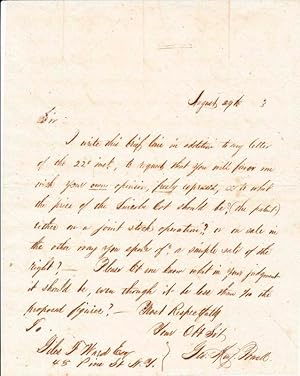 August 29th
Sir
I write this brief line in addition to my letter
of the 22d inst, to request that you will favor me
with your own opinion, freely expressed, as to what
the price of the Lot should be? (the patent)
either on a joint stock operation? or in sale in
the other way you speak of, a simple sale of the
right? — Please let me know what in your judgment
it should be, even though it be less than the
proposed figure? — Most Respectfully
To Your Obt Svt,
Ward Esq
45 Pine St N. Y.